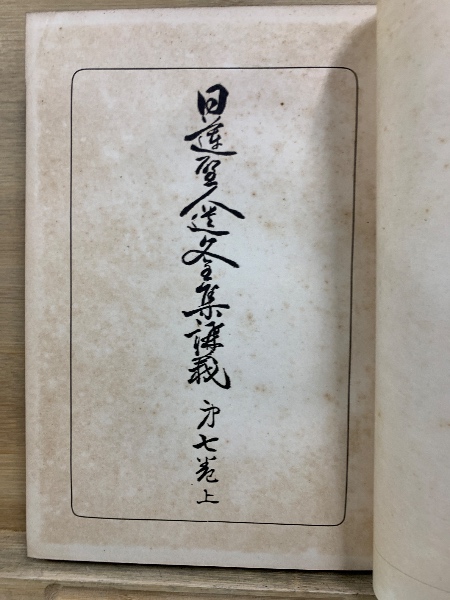 日蓮聖人遺文全集講義 第七巻上